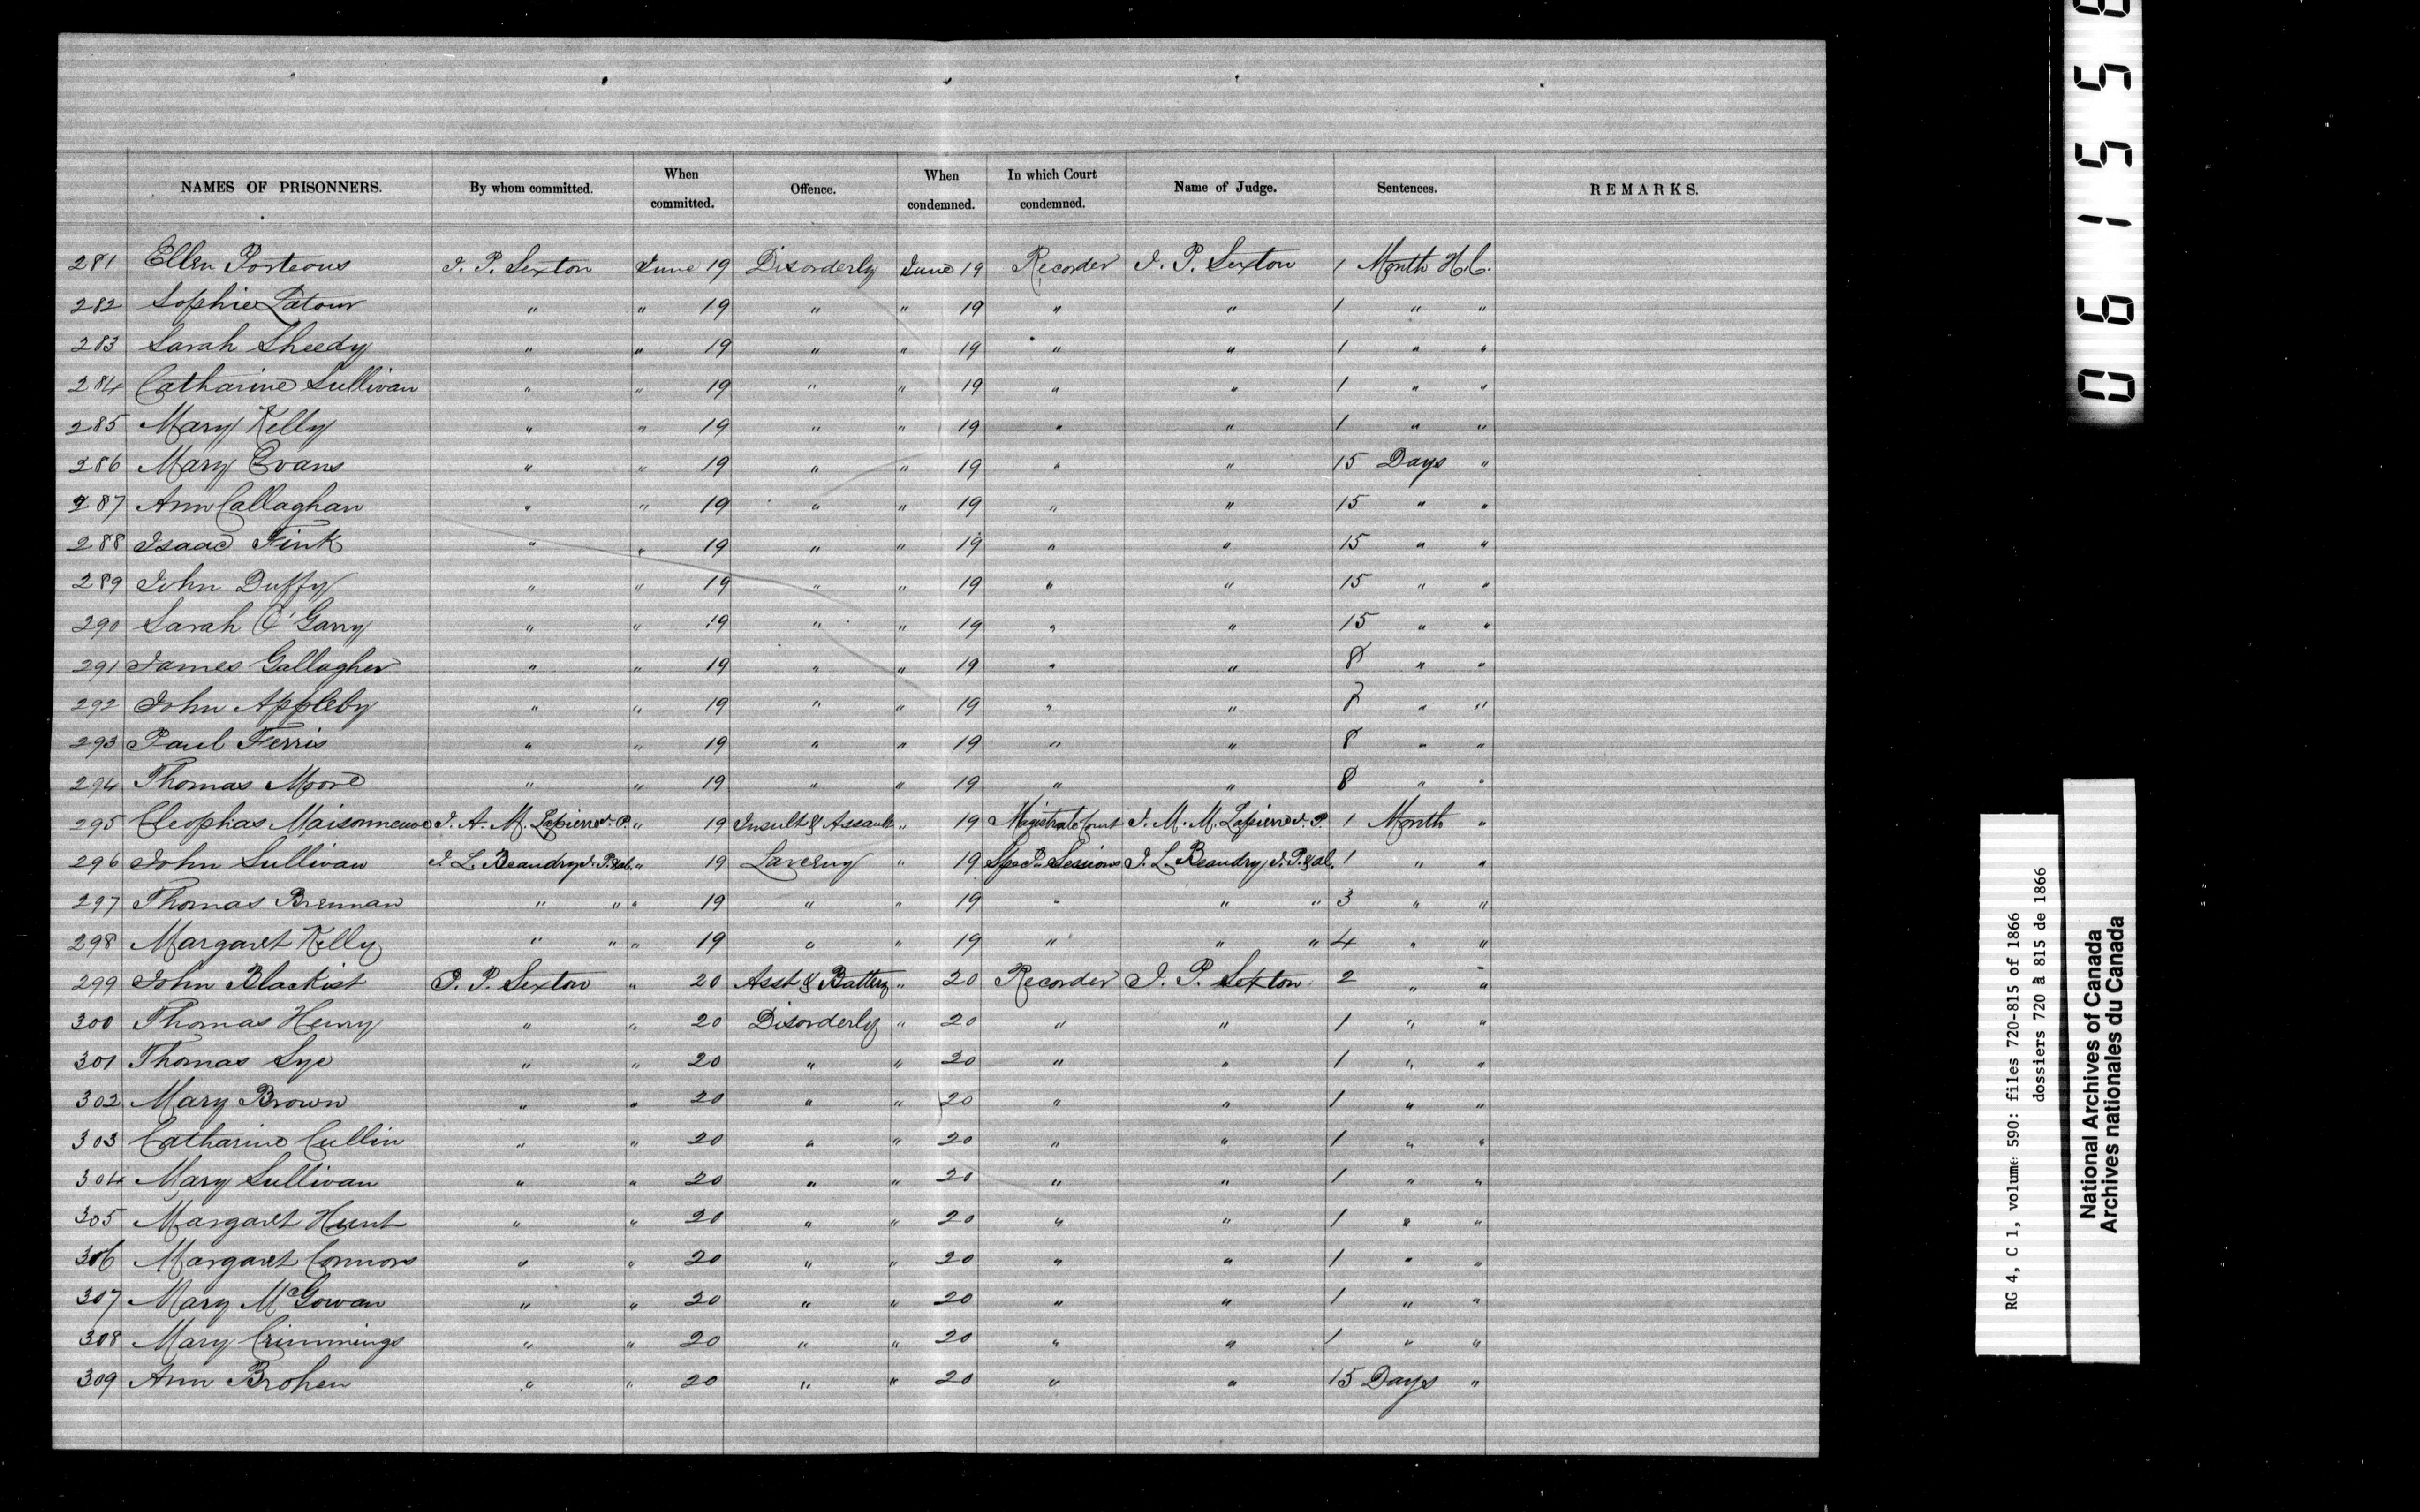 NAMES OF PRISONNERS. By whom committed. When committed. Offence. When condemned. In which Court condemned. Name of Judge. Sentences. REMARKS.
281 Ellen Porteous J. P. Sexton June 19 Disorderly June 19 Recorder J. P. Sexton 1 Month H.L.
282 Sophie Latour " " 19 " " 19 " " 1 " "
283 Sarah Sheedy " " 19 " " 19 " " 1 " "
284 Catharine Sullivan " " 19 " " 19 " " 1 " "
285 Mary Kelly " " 19 " " 19 " " 1 " "
286 Mary Evans " " 19 " " 19 " " 15 Days "
287 Ann Callaghan " " 19 " " 19 " " 15 " "
288 Isaac Fink " " 19 " " 19 " " 15 " "
289 John Duffy " " 19 " " 19 " " 15 " "
290 Sarah O'Garry " " 19 " " 19 " " 15 " "
291 James Gallagher " " 19 " " 19 " " 8 " "
292 John Appleby " " 19 " " 19 " " 8 " "
293 Paul Ferris " " 19 " " 19 " " 8 " "
294 Thomas Moore " " 19 " " 19 " " 8 " "
295 Cleophas Maisonneuve J. A. M. Lapierre J. P. " 19 Insult & Assault " 19 Magistrate Court J. M. M. Lapierre J. P. 1 Month "
296 John Sullivan J. L. Beaudry J. P. & al. " 19 Larceny " 19 Specl. Sessions J. L. Beaudry J. P. & al. 1 " "
297 Thomas Brennan " " " 19 " " 19 " " " 3 " "
298 Margaret Kelly " " " 19 " " 19 " " " 4 " "
299 John Blackist J. P. Sexton " 20 Asst & Battery " 20 Recorder J. P. Sexton 2 " "
300 Thomas Henry " " 20 Disorderly " 20 " " 1 " "
301 Thomas Lye " " 20 " " 20 " " 1 " "
302 Mary Brown " " 20 " " 20 " " 1 " "
303 Catharine Cullin " " 20 " " 20 " " 1 " "
304 Mary Sullivan " " 20 " " 20 " " 1 " "
305 Margaret Hunt " " 20 " " 20 " " 1 " "
306 Margaret Connors " " 20 " " 20 " " 1 " "
307 Mary McGowan " " 20 " " 20 " " 1 " "
308 Mary Crimmings " " 20 " " 20 " " 1 " "
309 Ann Brohen " " 20 " " 20 " " 15 Days "
RG 4, C 1, volume 590: files 720-815 of 1866
dossiers 720 à 815 de 1866
National Archives of Canada
Archives nationales du Canada